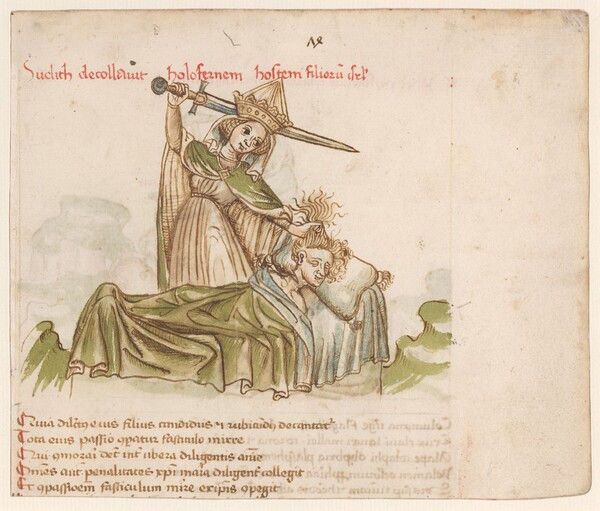 Judith decollauit holofernem hostem filioru̅ isrl'
Quia dilc̅us eius filius candidus ⁊ rubicu̅dꝰ decantat᷑
Tota eius passio co̅patur fasciculo mirre
Qui co̅morari det̅ int̅ ubera diligentis anie̅
Om̅es aut̅ penalitates xpi̅ maria diligent̅ collegit
Et co̅passioe̅m fasciculum mirre ex ipis̅ co̅pegit